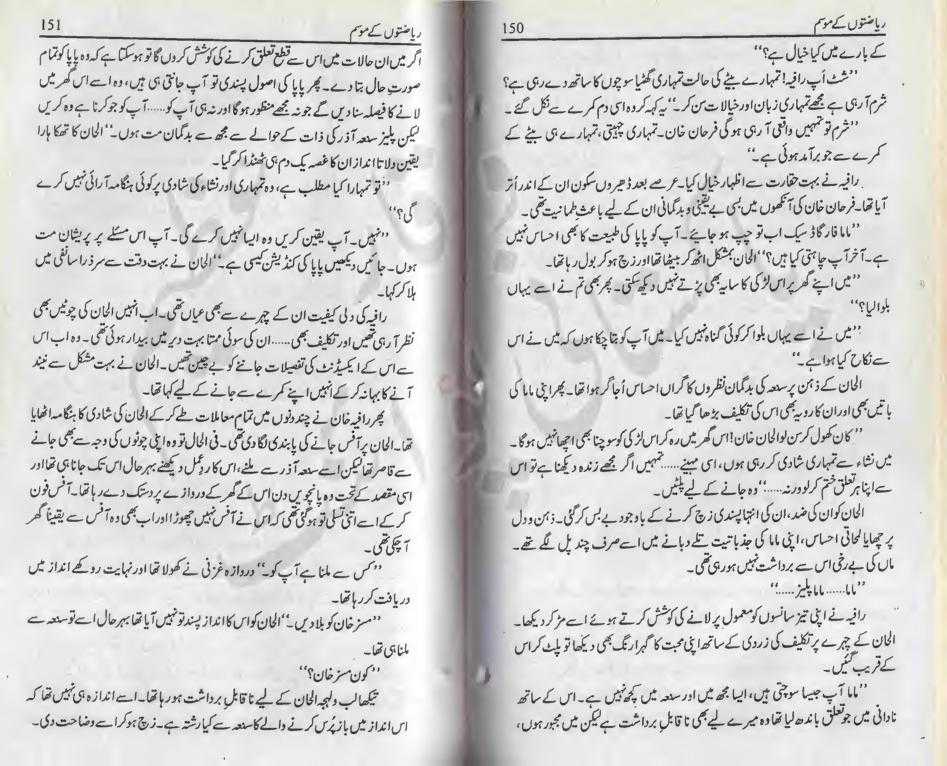 ریاضتوں کے موسم
150
کے بارے میں کیا خیال ہے؟‘‘
’’شٹ اَپ رافیہ! تمہارے بیٹے کی حالت تمہاری گھٹیا سوچوں کا ساتھ دے رہی ہے؟
شرم آ رہی ہے مجھے تمہاری زبان اور خیالات سن کر۔‘‘ یہ کہہ کر وہ اسی دم کمرے سے نکل گئے۔
’’شرم تو تمہیں واقعی آ رہی ہو گی فرحان خان۔ تمہاری چہیتی، تمہارے ہی بیٹے کے
کمرے سے جو برآمد ہوئی ہے۔‘‘
رافیہ نے بہت حقارت سے اظہار خیال کیا۔ عرصے بعد ڈھیروں سکون ان کے اندر اُتر
آیا تھا۔ فرحان خان کی آنکھوں میں بسی بے یقینی و بدگمانی ان کے لیے باعث طمانیت تھی۔
’’ماما فار گاڈ سیک اب تو چپ ہو جائیے۔ آپ کو پاپا کی طبیعت کا بھی احساس نہیں
ہے۔ آخر آپ چاہتی کیا ہیں؟‘‘ الحان بمشکل اٹھ کر بیٹھا تھا اور زچ ہو کر بول رہا تھا۔
’’میں اپنے گھر پر اس لڑکی کا سایہ بھی پڑتے نہیں دیکھ سکتی۔ پھر بھی تم نے اسے یہاں
بلوا لیا؟‘‘
’’میں نے اسے یہاں بلوا کر کوئی گناہ نہیں کیا۔ میں آپ کو بتا چکا ہوں کہ میں نے اس
سے نکاح کیا ہوا ہے۔‘‘
الحان کے ذہن پر سعہ کی بدگمان نظروں کا گراں احساس اُجاگر ہوا تھا۔ پھر اپنی ماما کی
باتیں بھی اور ان کا رویہ بھی اس کی تکلیف بڑھا گیا تھا۔
’’کان کھول کر سن لو الحان خان! اس گھر میں رہ کر اس لڑکی کو سوچنا بھی اچھا نہیں ہوگا۔
میں نشاء سے تمہاری شادی کر رہی ہوں، اسی مہینے...... تمہیں اگر مجھے زندہ دیکھنا ہے تو اس
سے اپنا ہر تعلق ختم کر لو ورنہ......‘‘ وہ جانے کے لیے پلٹیں۔
الحان کو ان کی ضد، ان کی انتہا پسندی زچ کرنے کے باوجود بے بس کر گئی۔ ذہن و دل
پر چھایا لحاتی احساس، اپنی ماما کی جذباتیت تلے دبانے میں اسے صرف چند پل لگے تھے۔
ماں کی بے رخی اس سے برداشت نہیں ہو رہی تھی۔
’’ماما...... ماما پلیز......‘‘
رافیہ نے اپنی تیز سانسوں کو معمول پر لانے کی کوشش کرتے ہوئے اسے مڑ کر دیکھا۔
الحان کے چہرے پر تکلیف کی زردی کے ساتھ اپنی محبت کا گہرا رنگ بھی دیکھا تو پلٹ کر اس
کے قریب گئیں۔
’’ماما آپ جیسا سوچتی ہیں، ایسا مجھ میں اور سعہ میں کچھ نہیں ہے۔ اس کے ساتھ
نادانی میں جو تعلق باندھ لیا تھا وہ میرے لیے بھی ناقابل برداشت ہے لیکن میں مجبور ہوں،
ریاضتوں کے موسم
151
اگر میں ان حالات میں اس سے قطع تعلق کرنے کی کوشش کروں گا تو ہو سکتا ہے کہ وہ پاپا کو تمام
صورت حال بتا دے۔ پھر پاپا کی اصول پسندی تو آپ جانتی ہی ہیں، وہ اسے اس گھر میں
لانے کا فیصلہ سنا دیں گے جو نہ مجھے منظور ہوگا اور نہ ہی آپ کو...... آپ کو جو کرنا ہے وہ کریں
لیکن پلیز سعہ آذر کی ذات کے حوالے سے مجھ سے بدگمان مت ہوں۔‘‘ الحان کا تھکا ہارا
یقین دلاتا انداز ان کا غصہ یک دم ہی ٹھنڈا کر گیا۔
’’تو تمہارا کیا مطلب ہے، وہ تمہاری اور نشاء کی شادی پر کوئی ہنگامہ آرائی نہیں کرے
گی؟‘‘
’’نہیں۔ آپ یقین کریں وہ ایسا نہیں کرے گی۔ آپ اس مسئلے پر پریشان مت
ہوں۔ جائیں دیکھیں پاپا کی کنڈیشن کیسی ہے۔‘‘ الحان نے بہت دقت سے سر ذرا سا نفی میں
ہلا کر کہا۔
رافیہ کی دلی کیفیت ان کے چہرے سے بھی عیاں تھی۔ اب انہیں الحان کی چوٹیں بھی
نظر آ رہی تھیں اور تکلیف بھی...... ان کی سوئی ممتا بہت دیر میں بیدار ہوئی تھی۔ وہ اب اس
سے اس کے ایکسیڈنٹ کی تفصیلات جاننے کو بے چین تھیں۔ الحان نے بہت مشکل سے نیند
آنے کا بہانہ کر کے انہیں اپنے کمرے سے جانے کے لیے کہا تھا۔
پھر رافیہ خان نے چند دنوں میں تمام معاملات طے کر کے الحان کی شادی کا ہنگامہ اٹھایا
تھا۔ الحان پر آفس جانے کی پابندی لگا دی تھی۔ فی الحال تو وہ اپنی چوٹوں کی وجہ سے بھی جانے
سے قاصر تھا لیکن اسے سعہ آذر سے ملنے، اس کا ردِ عمل دیکھنے بہرحال اس تک جانا ہی تھا اور
اسی مقصد کے تحت وہ پانچویں دن اس کے گھر کے دروازے پر دستک دے رہا تھا۔ آفس فون
کر کے اسے اتنی تسلی تو ہو گئی تھی کہ اس نے آفس نہیں چھوڑا اور اب بھی وہ آفس سے یقیناً گھر
آ چکی تھی۔
’’کس سے ملنا ہے آپ کو۔‘‘ دروازہ غزنی نے کھولا تھا اور نہایت روکھے انداز میں
دریافت کر رہا تھا۔
’’مسز خان کو بلا دیں۔‘‘ الحان کو اس کا انداز پسند تو نہیں آیا تھا بہرحال اسے تو سعہ سے
ملنا ہی تھا۔
’’کون مسز خان؟‘‘
تیکھا لب و لہجہ الحان کے لیے ناقابل برداشت ہو رہا تھا۔ اسے اندازہ ہی نہیں تھا کہ
اس انداز میں باز پُرس کرنے والے کا سعہ سے کیا رشتہ ہے۔ زچ ہو کر اسے وضاحت دی۔